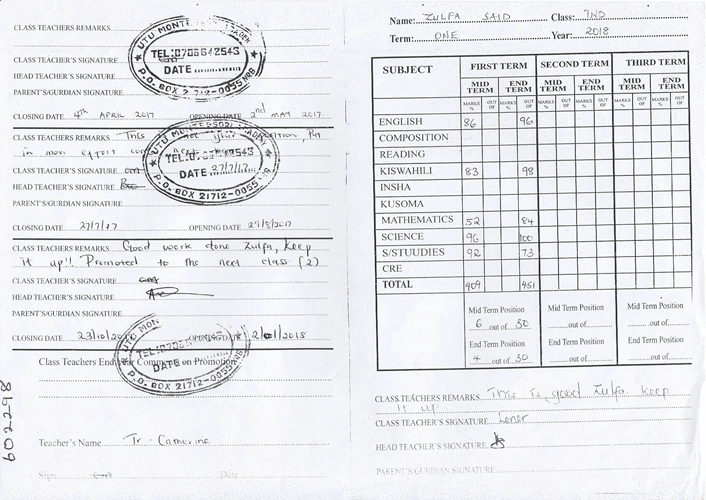 CLASS TEACHERS REMARKS
UTU MONTE
TEL:0706642543
CLASS TEACHER'S SIGNATURE
DATE
HEAD TEACHER'S SIGNATURE
P.O. BOX 21712-00
PARENT'S/GURDIAN SIGNATURE
CLOSING DATE 4th APRIL 2017 OPENING DATE 2nd MAY 2017
CLASS TEACHERS REMARKS This not your position, Put
in more effort next
UTU MONTESSORI
TEL:
CLASS TEACHER'S SIGNATURE
DATE 27/7/17
HEAD TEACHER'S SIGNATURE
P.O. BOX 21712-00
PARENT'S/GURDIAN SIGNATURE
CLOSING DATE 27/7/17 OPENING DATE 29/8/2017
CLASS TEACHERS REMARKS Good work done Zulfa, keep
it up!! Promoted to the next class (2)
CLASS TEACHER'S SIGNATURE
HEAD TEACHER'S SIGNATURE
PARENT'S/GURDIAN SIGNATURE
UTU MON
CLOSING DATE 23/10/20 OPENING DATE 2/01/2018
TEL:
DATE
Class Teachers End Year Comment on Promotion
P.O. BOX 21712-00
602298
Teacher's Name Tr. Catherine
Sign Date
Name: ZULFA SAID Class: TWO
Term: ONE Year: 2018
SUBJECT FIRST TERM SECOND TERM THIRD TERM
MID TERM END TERM MID TERM END TERM MID TERM END TERM
MARKS % OUT OF MARKS % OUT OF MARKS % OUT OF MARKS % OUT OF MARKS % OUT OF MARKS % OUT OF
ENGLISH 86 96
COMPOSITION
READING
KISWAHILI 83 98
INSHA
KUSOMA
MATHEMATICS 52 84
SCIENCE 96 100
S/STUUDIES 92 73
CRE
TOTAL 409 451
Mid Term Position Mid Term Position Mid Term Position
6 out of 50 out of out of
End Term Position End Term Position End Term Position
4 out of 50 out of out of
CLASS TEACHERS REMARKS This is good Zulfa keep
it up
CLASS TEACHER'S SIGNATURE
HEAD TEACHER'S SIGNATURE
PARENT'S/GURDIAN SIGNATURE